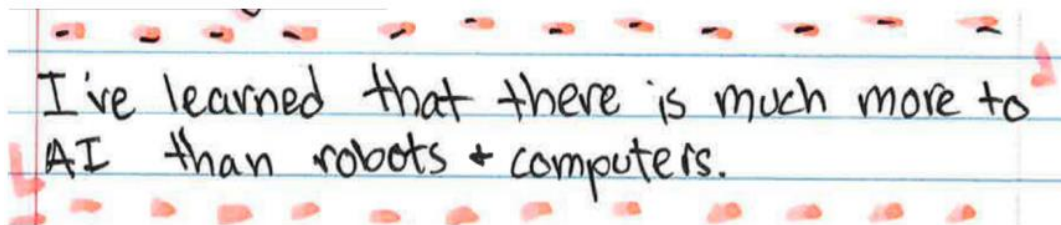 I've learned that there is much more to
AI than robots & computers.